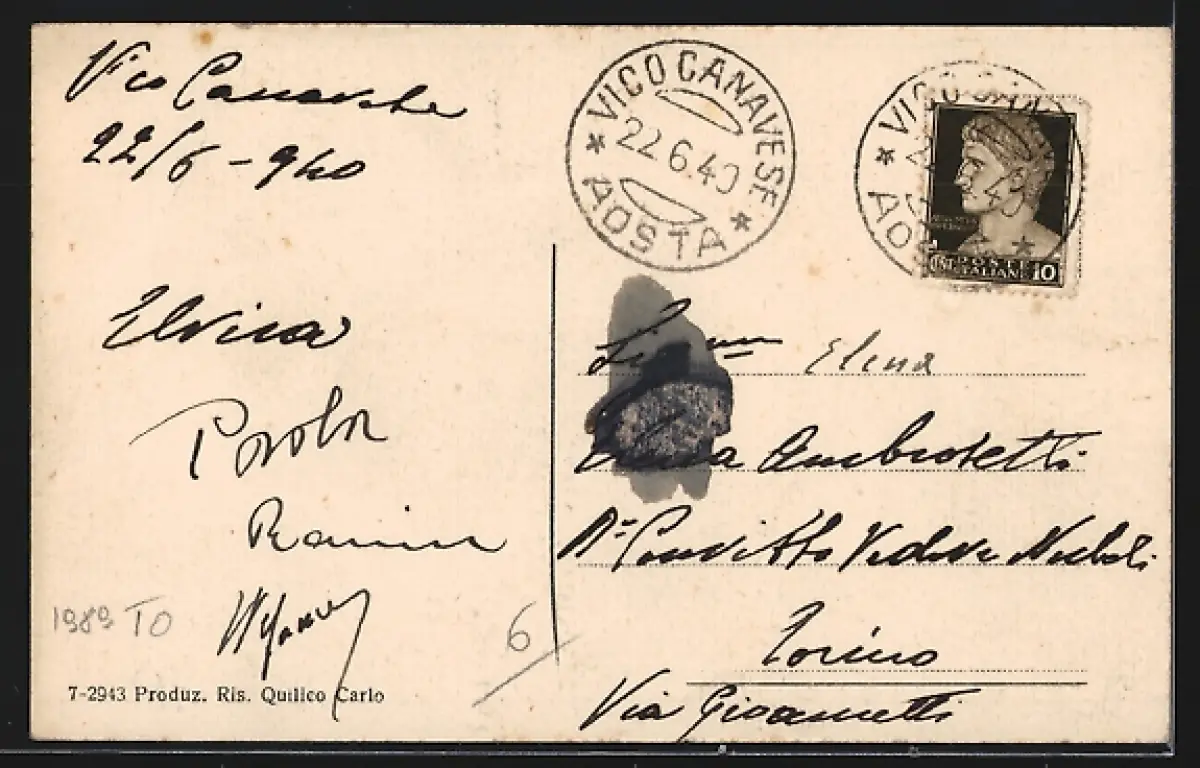 Vico Canavese
22/6 - 940
VICO CANAVESE
22.6.40
AOSTA
VICO CAN
AOS
POSTE
ITALIANE
10
Elvira
Elena
Ambrosetti
Rº Convitto Vedove Nobili
Torino
Via Giovanetti
1989 TO
6
7-2943 Produz. Ris. Quilico Carlo